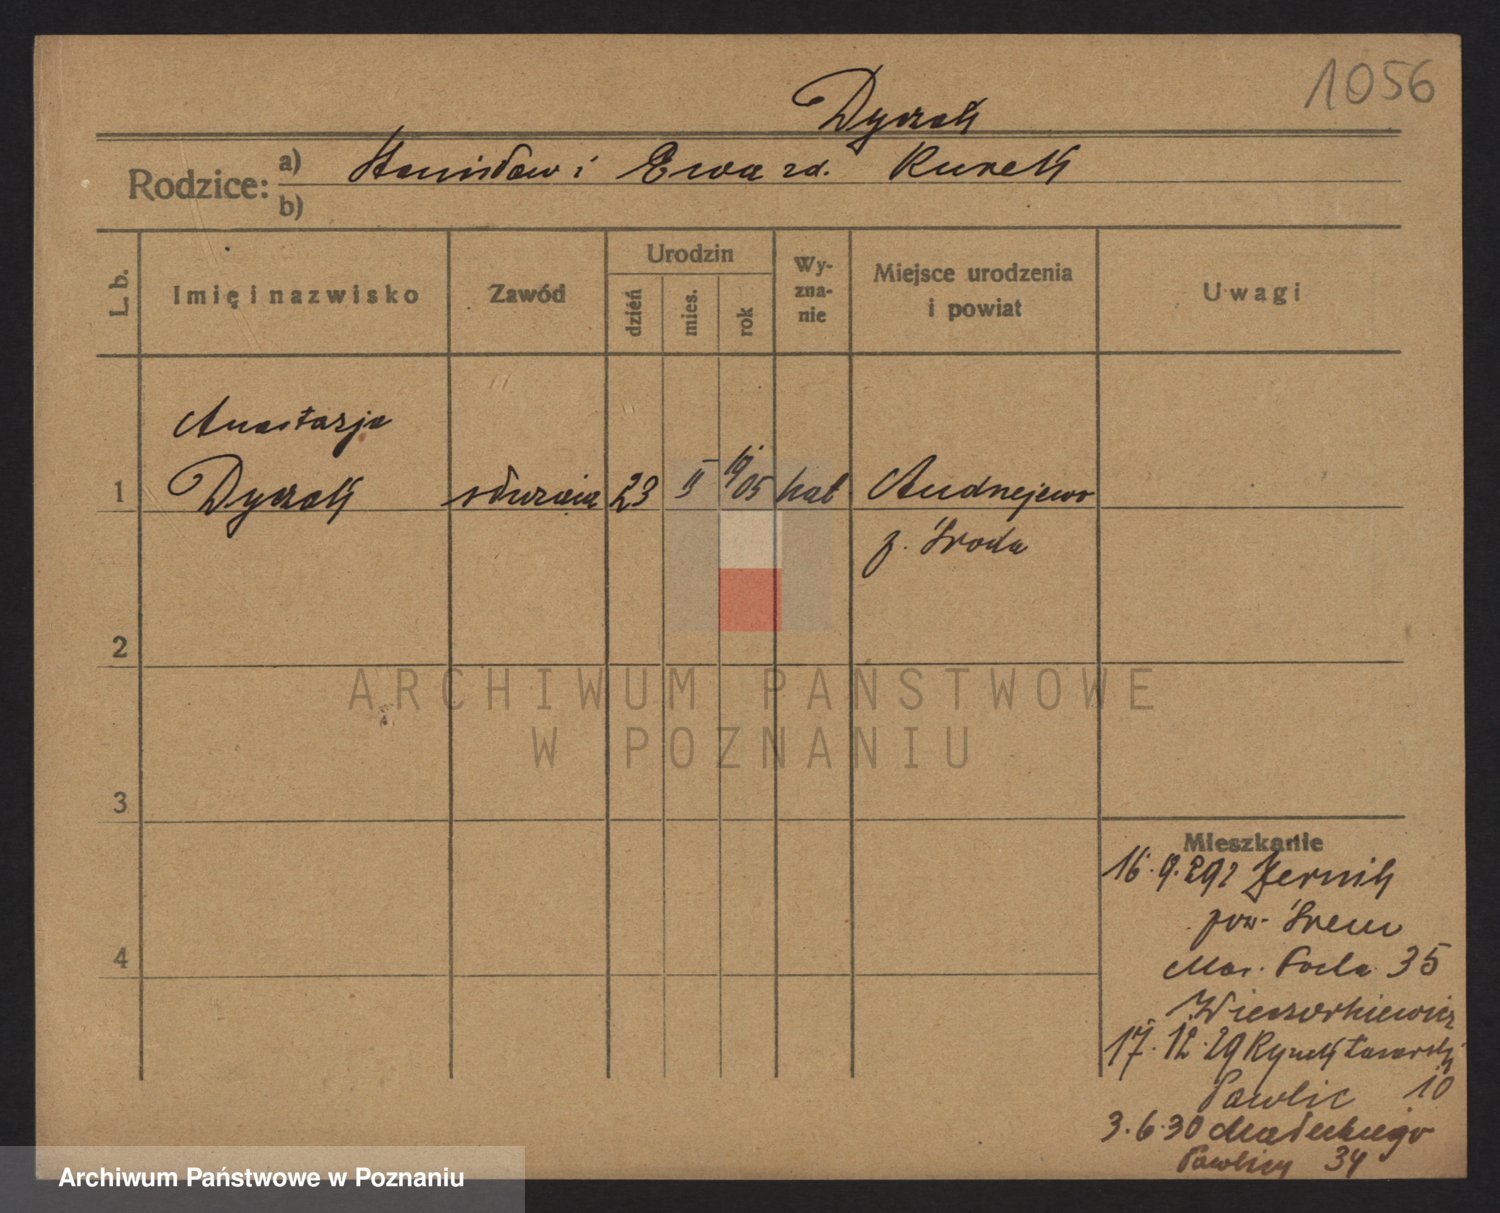 1056
Dyzak
Rodzice: a) Stanisław i Ewa zd. Kurek
b)
L. b.
Imię i nazwisko
Zawód
Urodzin
dzień
mies.
rok
Wy-
zna-
nie
Miejsce urodzenia
i powiat
Uwagi
Anastazja
1 Dyzak służąca 23 II 19/05 kat Andrzejewo
p. Środa
2
3
4
Mieszkanie
16.9.29 z Żernik
pow. Śrem
Mar. Focha 35
Wieczorkiewicz
17.12.29 Rynek Łazarski
Pawlic 10
3.6.30 Małeckiego
34
ARCHIWUM PAŃSTWOWE
W POZNANIU
Archiwum Państwowe w Poznaniu